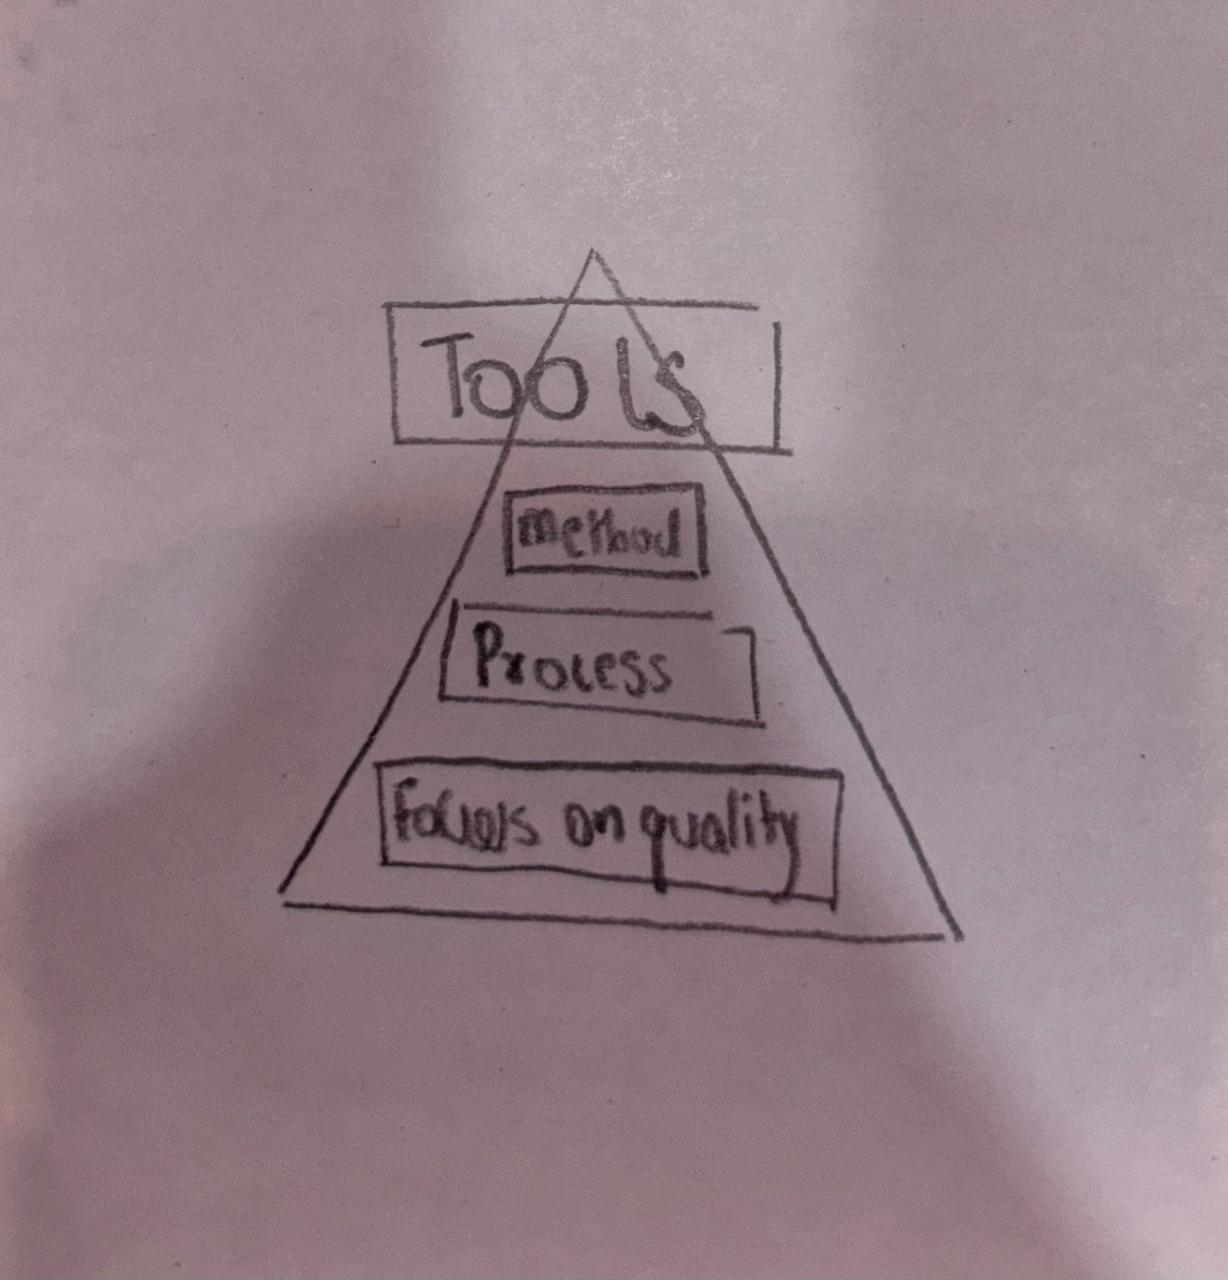 Tools
method
Process
Focus on quality